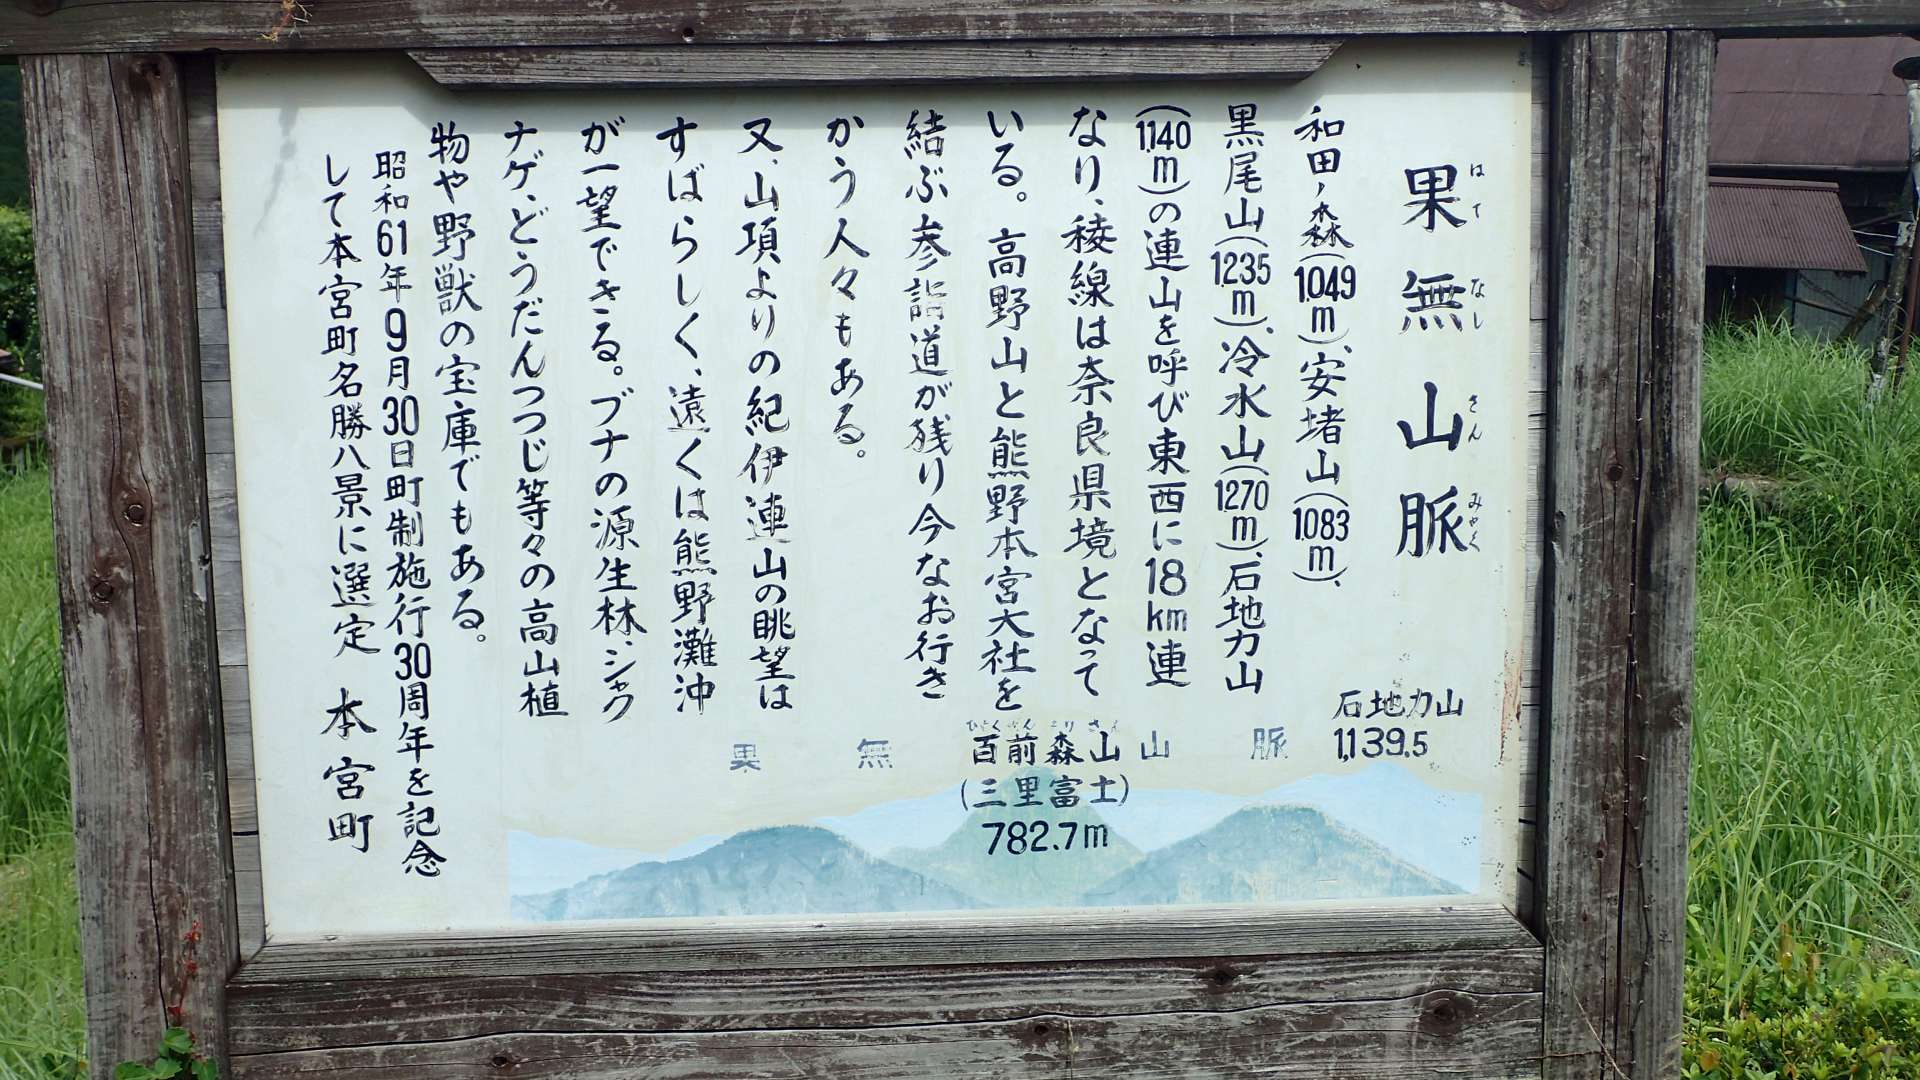 果無山脈
はてなしさんみゃく
和田ノ森(1.049m)、安堵山(1.083m)、
黒尾山(1235m)、冷水山(1270m)、石地力山
(1.140m)の連山を呼び東西に18km連
なり、稜線は奈良県境となって
いる。高野山と熊野本宮大社を
結ぶ参詣道が残り今なお行き
かう人々もある。
又、山頂よりの紀伊連山の眺望は
すばらしく、遠くは熊野灘沖
が一望できる。ブナの源生林、シャク
ナゲ、どうだんつつじ等々の高山植
物や野獣の宝庫でもある。
昭和61年9月30日町制施行30周年を記念
して本宮町名勝八景に選定 本宮町
石地力山
1,139.5
果無山脈
ひゃくぜんもりさん
百前森山
(三里富士)
782.7m